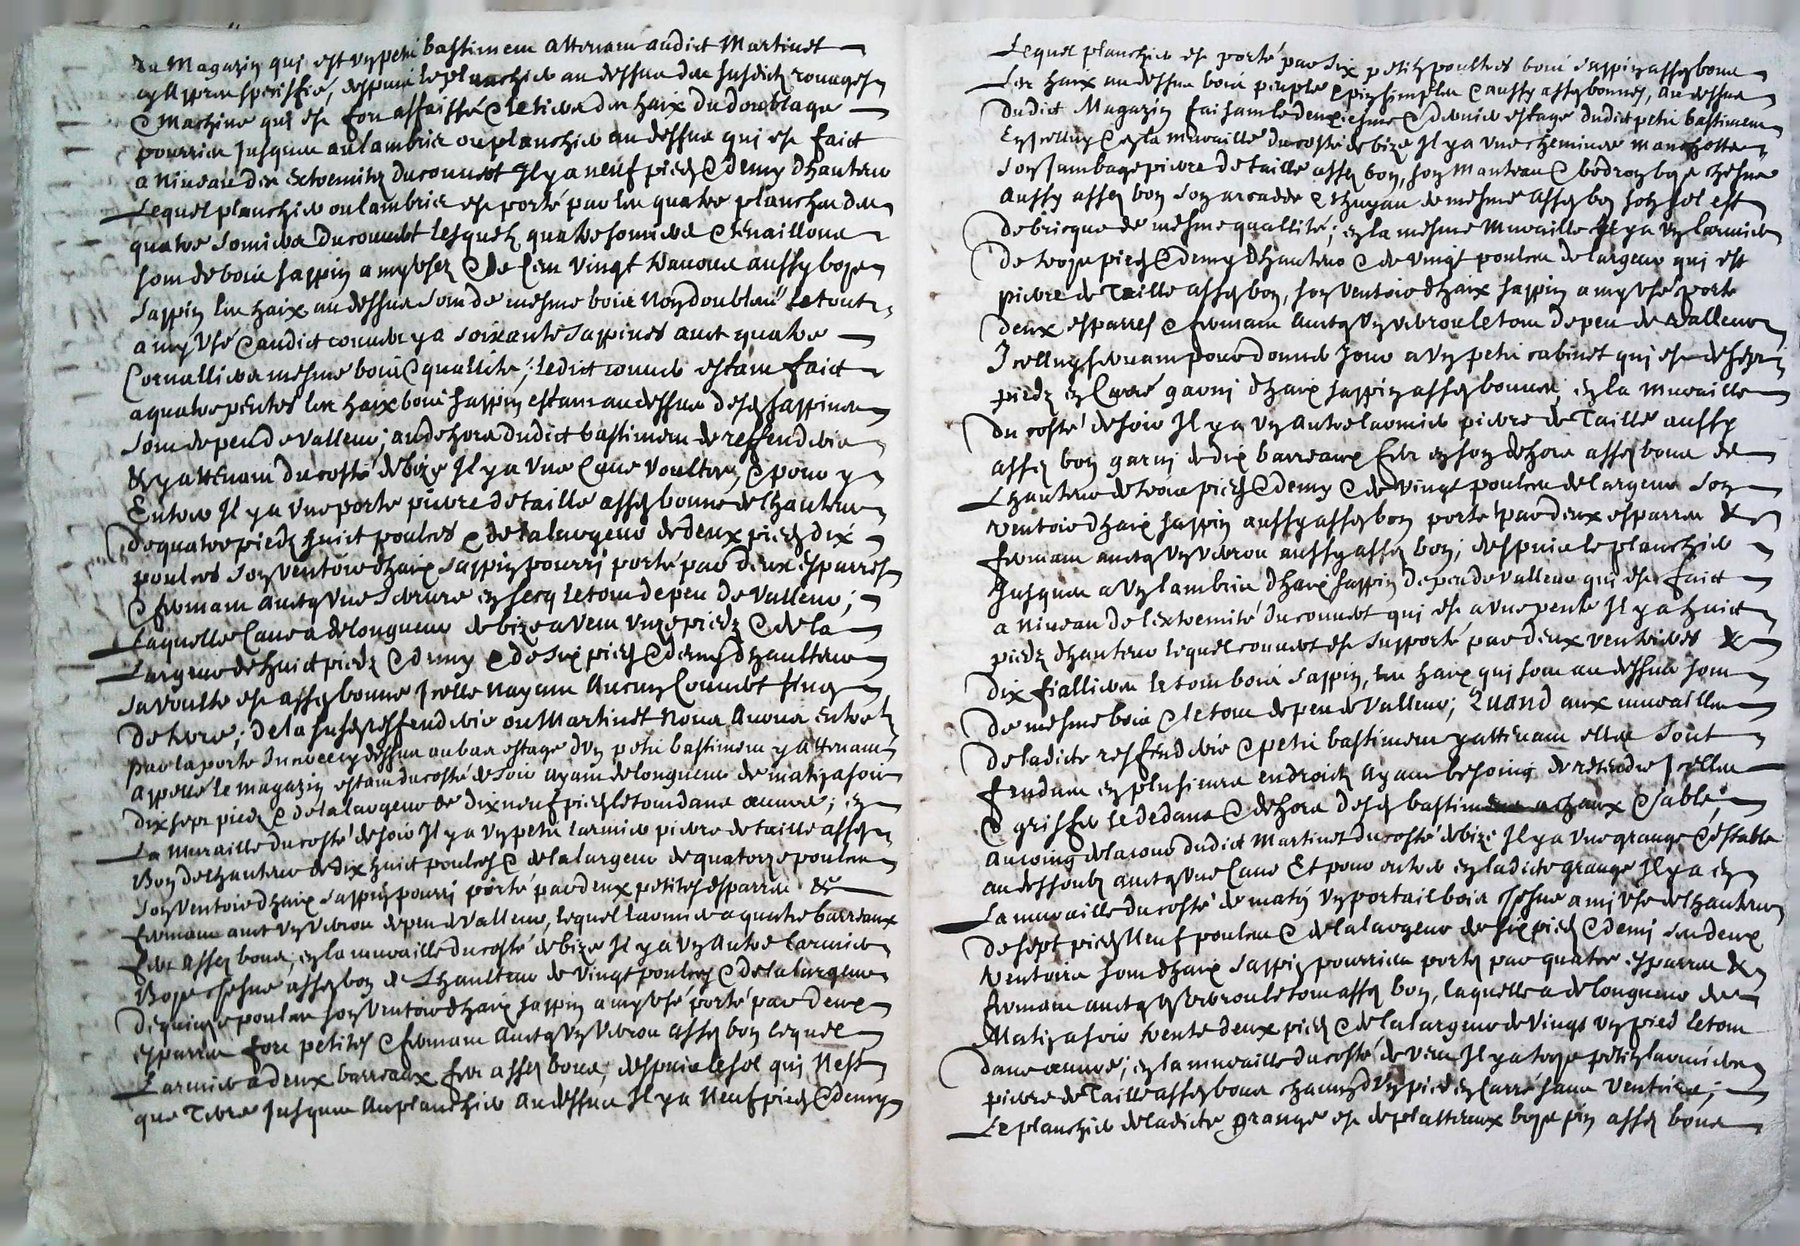 du Magazin qui est un petit bastiment attenant audict Martinet
cy apres speciffié, despuis le planchier au dessus des susdictz rouages
& Machine qui est fort affaissé & le tiers des haix du doublage
pourries jusques au lambris ou planchier au dessus qui est faict
a Niveau des Extremitez du couvert Il y a neuf piedz & demy d'hauteur
Lequel planchier ou lambris est porté par les quatre planches des
quatre somiers du couvert lesquelz quatre somiers & tenaillons
sont de bois sappin a my usez & de leur vingt travons aussy bois
sappin les haix au dessus sont de mesme bois Non doublés le tout
a my usé & audict couvert y a soixante sappines avec quatre
Cornalliers mesme bois & quallité; ledict couvert estant faict
a quatre pentes les haix bois sappin estant au dessus desd sappines
sont de peu de valleur; au dehors dudict bastiment de reffenderie
& y attenant du costé de bize Il y a une Cave voultee, & pour y
Entrer Il y a une porte pierre de taille assez bonne de l'hauteur
de quatre piedz huict poulces & de la largeur de deux piedz dix
poulces son ventoir d'haix sappin pourri porté par deux esparres
& fermant avec une serrure en secq le tout de peu de valleur;
Laquelle Cave a de longueur de bize a vent unze piedz & de la
Largeur de huict piedz & demy & de six piedz & demy d'haulteur
sa voulte est assez bonne Icelle nayant Aucun Couvert sinoz
de terre; de la susd reffenderie ou Martinet Nous Avons Entrez
par la porte Inveecy dessus au bas estage d'un petit bastiment y attenant
appellé le Magazin estant du costé de soir ayant de longueur de matin a soir
dix sept piedz & de la largeur de dix neuf piedz le tout dans oeuvre; en
La Muraille du costé de soir Il y a un petit larmier pierre de taille assez
Bon de l'hauteur de dix huict poulces & de la largeur de quatorze poulces
son ventoir d'haix sappin pourri porté par deux petites esparres &
fermant avec un verrou de peu de Valleur, lequel larmier a quatre barreaux
fer assez bons, en la muraille du costé de bize Il y a un Autre larmier
Bois chesne assez bon de L'haulteur de vingt poulces & de la largeur
de quinze poulces son ventoir d'haix sappin a my usé porté par deux
esparres fort petites & fermant Avec un Verrou assez bon lequel
Larmier a deux barreaux fer assez bons, despuis le sol qui Nest
que Terre Jusques Au planchier Au dessus Il y a Neuf piedz & demy
Lequel planchier est porté par six petitz poultres bois sappin assez bons
Les haix au dessus bois peuple & pin simples & aussy assez bonnes, au dessus
dudict Magazin faisant le deuxiesme & dernier estage dudict petit bastiment
En icelluy & en la muraille du costé de bize Il y a une cheminee
son jambage pierre de taille assez bon, son manteau & bodron bois chesne
Aussy assez bon son arcadde & thuyau de mesme assez bon son sol est
De bricque de mesme quallité; en la mesme muraille Il y a un larmier
De trois piedz & demy d'hauteur & de vingt poulces de largeur qui est
pierre de Taille assez bon, son ventoir d'haix sappin a my usé porté
deux esparres & fermant Avec un verrou le tout de peu de Valleur
Icelluy servant pour donner Jour a un petit cabinet qui est de sept
piedz en Carré garni d'haix sappin assez bonnes, en la muraille
du costé de soir Il y a un Autre larmier pierre de Taille aussy
assez bon garni de dix barreaux fer en son dehors assez bons de
L'hauteur de trois piedz & demy & de vingt poulces de largeur son
ventoir d'haix sappin aussy assez bon porté par deux esparres &
fermant avec un verrou aussy assez bon; despuis le planchier
Jusques a un lambris d'haix sappin de peu de valleur qui est faict
a Niveau de l'extremité du couvert qui est a une pente Il y a huict
piedz d'hauteur lequel couvert est supporté par deux ventriers &
Dix fialliers le tout bois sappin, les haix qui sont au dessus sont
de mesme bois & le tout de peu de Valleur; Quand aux murailles
de ladicte reffenderie & petit bastiment y attenant elles sont
fendues en plusieurs endroictz ayant besoing de retendre Icelles
& griffer le dedans & dehors desd bastiment a chaux & sable,
Au coing de la cour dudict Martinet du costé de bize Il y a une grange & estable
au dessoubz avec une Cave Et pour entrer en ladicte grange Il y a en
La muraille du costé de matin un portail bois chesne a mi usé de l'hauteur
De sept piedz Neuf poulces & de la largeur de six piedz & demi ses deux
ventoirs sont d'haix sappin pourries portez par quatre esparres &
fermant avec un verrou le tout assez bon, laquelle a de longueur de
Matin a soir trente deux piedz & de la largeur de vingt un pied le tout
dans oeuvre; en la muraille du costé de vent Il y a trois petitz larmiers
pierre de Taille assez bons chacung d'un pied en Carré sans Ventoirs;
Le planchier de ladicte grange est de platteaux bois pin assez bons